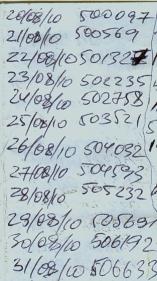 20/08/10 500097
21/08/10 500569
22/08/10 501327
23/08/10 502235
24/08/10 502758
25/08/10 503521
26/08/10 504032
27/08/10 504593
28/08/10 505232
29/08/10 505691
30/08/10 506192
31/08/10 506633